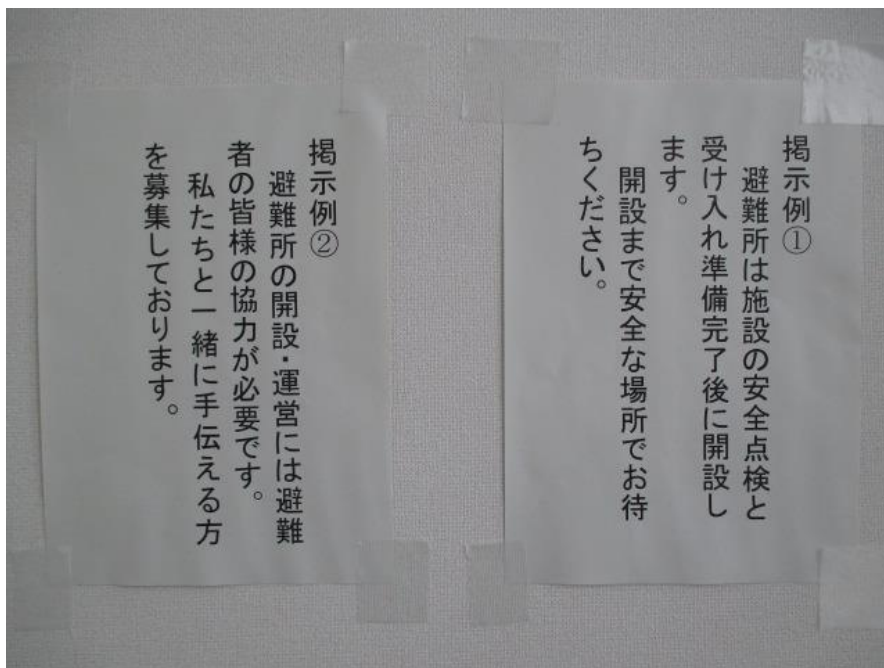 掲示例①
避難所は施設の安全点検と
受け入れ準備完了後に開設し
ます。
開設まで安全な場所でお待
ちください。
掲示例②
避難所の開設・運営には避難
者の皆様の協力が必要です。
私たちと一緒に手伝える方
を募集しております。